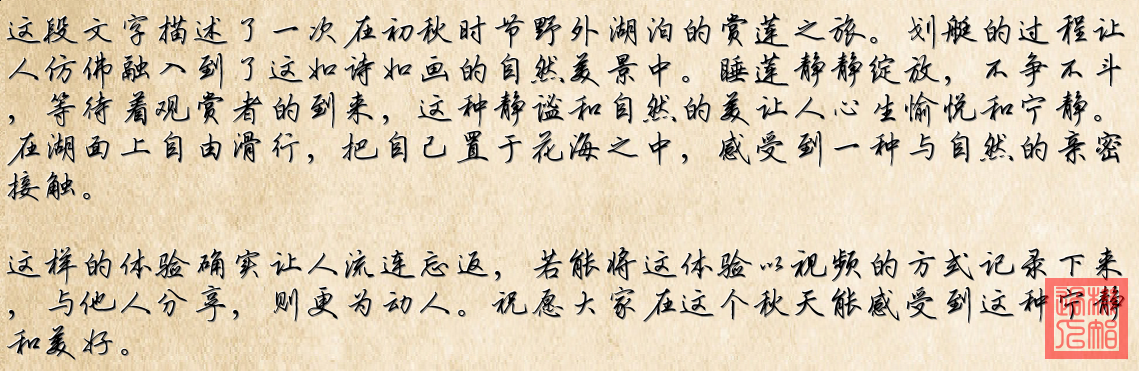 这段文字描述了一次在初秋时节野外湖泊的赏莲之旅。划艇的过程让
人仿佛融入到了这如诗如画的自然美景中。睡莲静静绽放，不争不斗
，等待着观赏者的到来，这种静谧和自然的美让人心生愉悦和宁静。
在湖面上自由滑行，把自己置于花海之中，感受到一种与自然的亲密
接触。
这样的体验确实让人流连忘返，若能将这体验以视频的方式记录下来
，与他人分享，则更为动人。祝愿大家在这个秋天能感受到这种宁静
和美好。